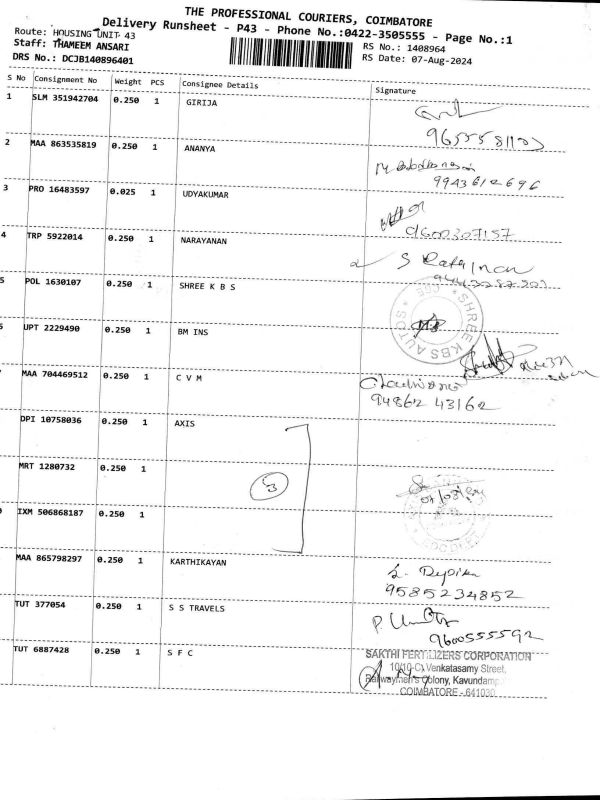 THE PROFESSIONAL COURIERS, COIMBATORE
Delivery Runsheet - P43 - Phone No.:0422-3505555 - Page No.:1
Route: HOUSING UNIT 43
RS No.: 1408964
Staff: THAMEEM ANSARI
RS Date: 07-Aug-2024
DRS No.: DCJB140896401
S No Consignment No Weight PCS Consignee Details Signature
1 SLM 351942704 0.250 1 GIRIJA
2 MAA 863535819 0.250 1 ANANYA
9943612696
3 PRO 16483597 0.025 1 UDYAKUMAR
9600307157
4 TRP 5922014 0.250 1 NARAYANAN
S
5 POL 1630107 0.250 1 SHREE K B S
SHREE KBS AUTOS
UPT 2229490 0.250 1 BM INS
MAA 704469512 0.250 1 C V M
94862 43162
DPI 10758036 0.250 1 AXIS
MRT 1280732 0.250 1
3
IXM 506868187 0.250 1
MAA 865798297 0.250 1 KARTHIKAYAN
9585234852
TUT 377054 0.250 1 S S TRAVELS
9600555592
TUT 6887428 0.250 1 S F C
SAKTHI FERTILIZERS CORPORATION
10/10-C, Venkatasamy Street,
Railwaymen's Colony, Kavundamp
COIMBATORE - 641030.